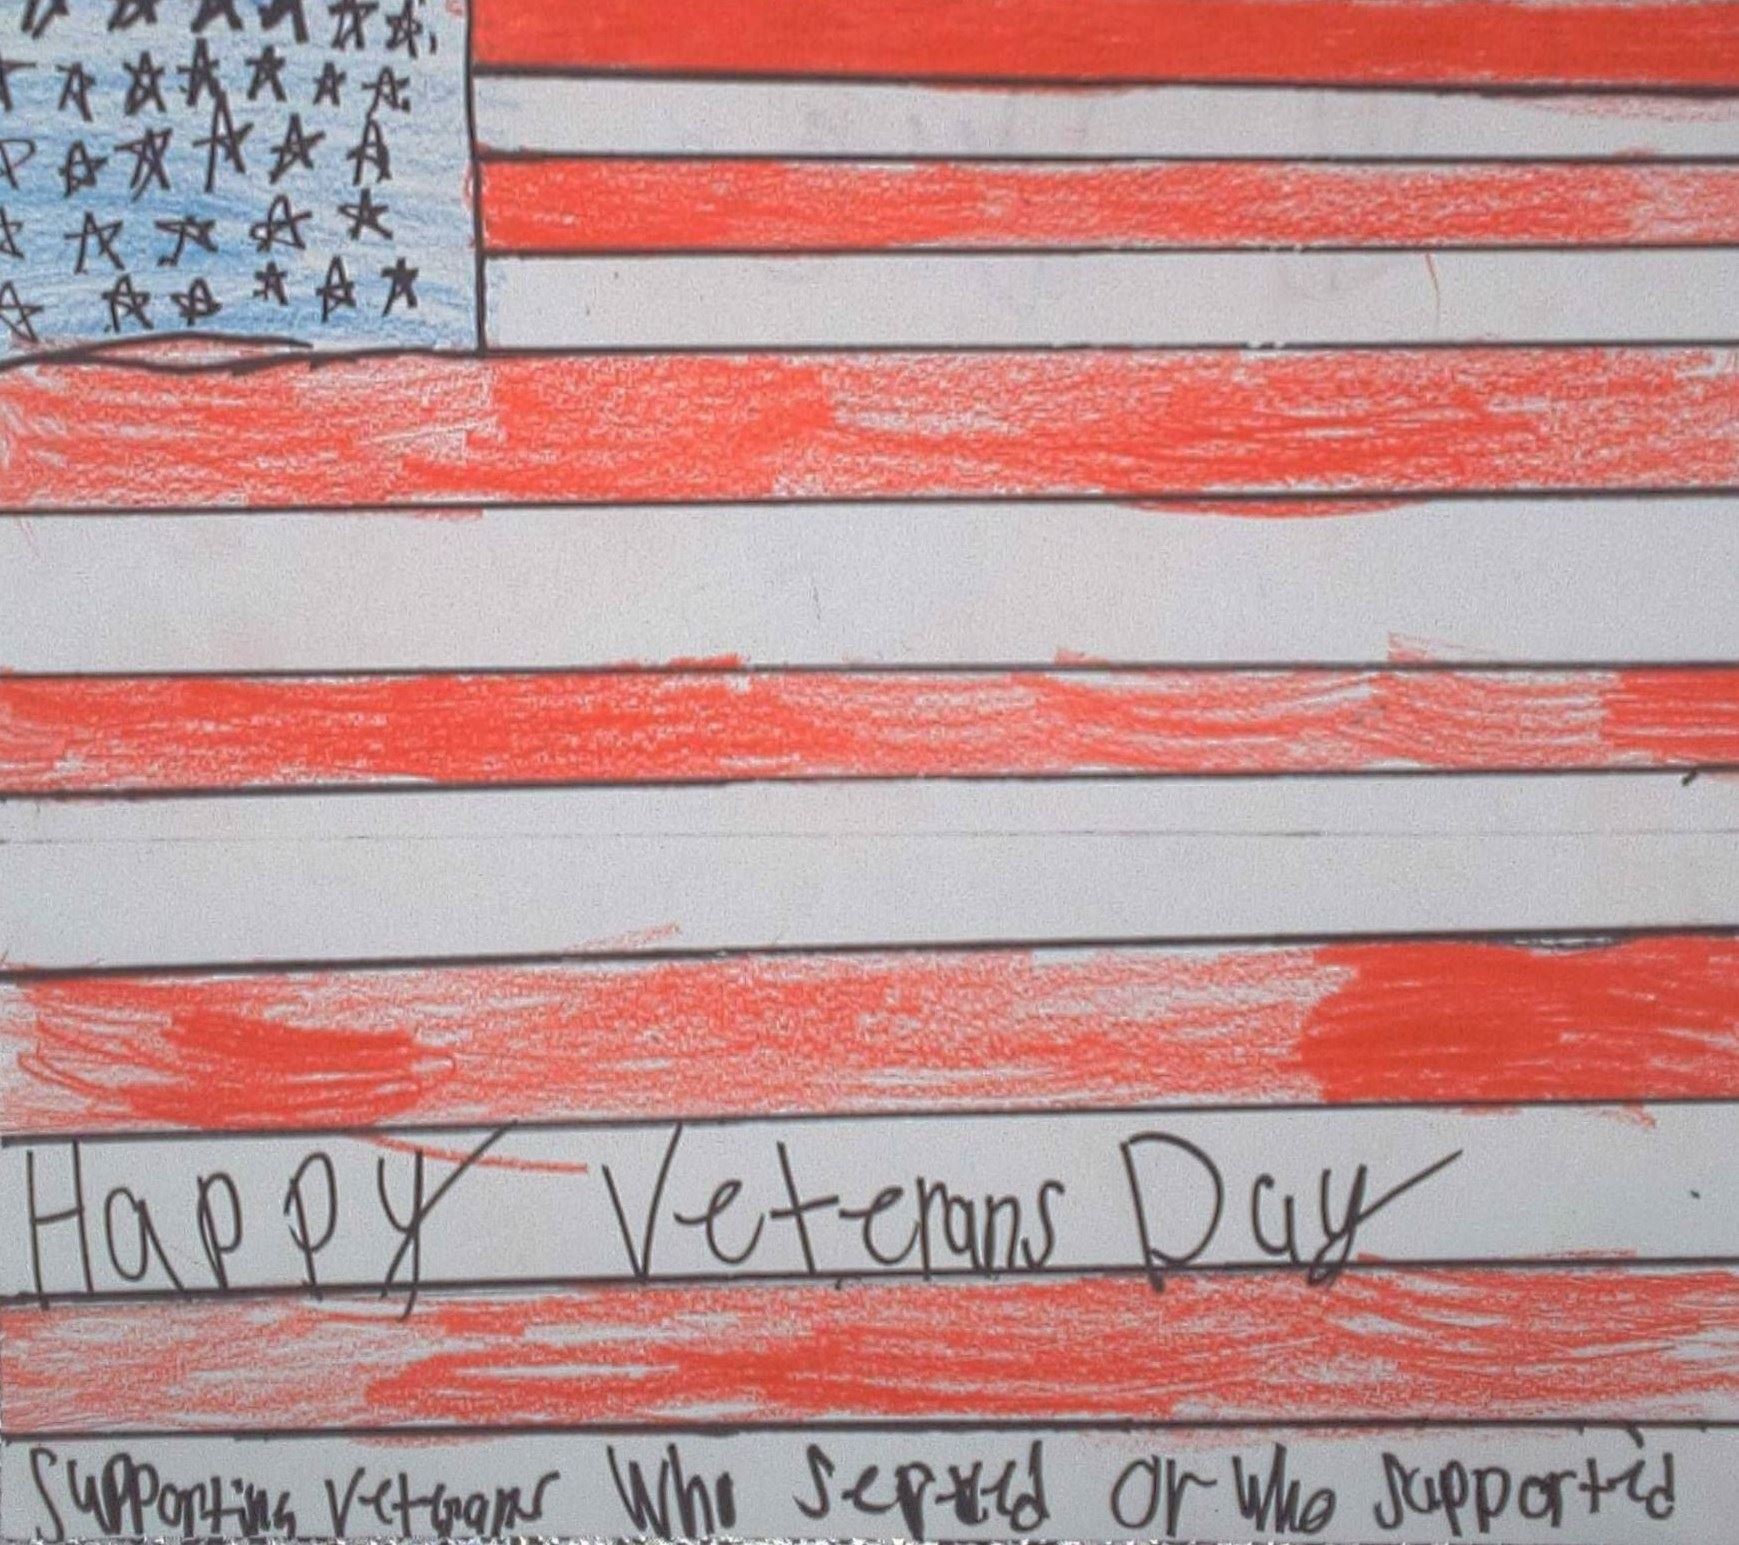 Happy Veterans Day
Supporting Veterans Who Served Or Who Supported